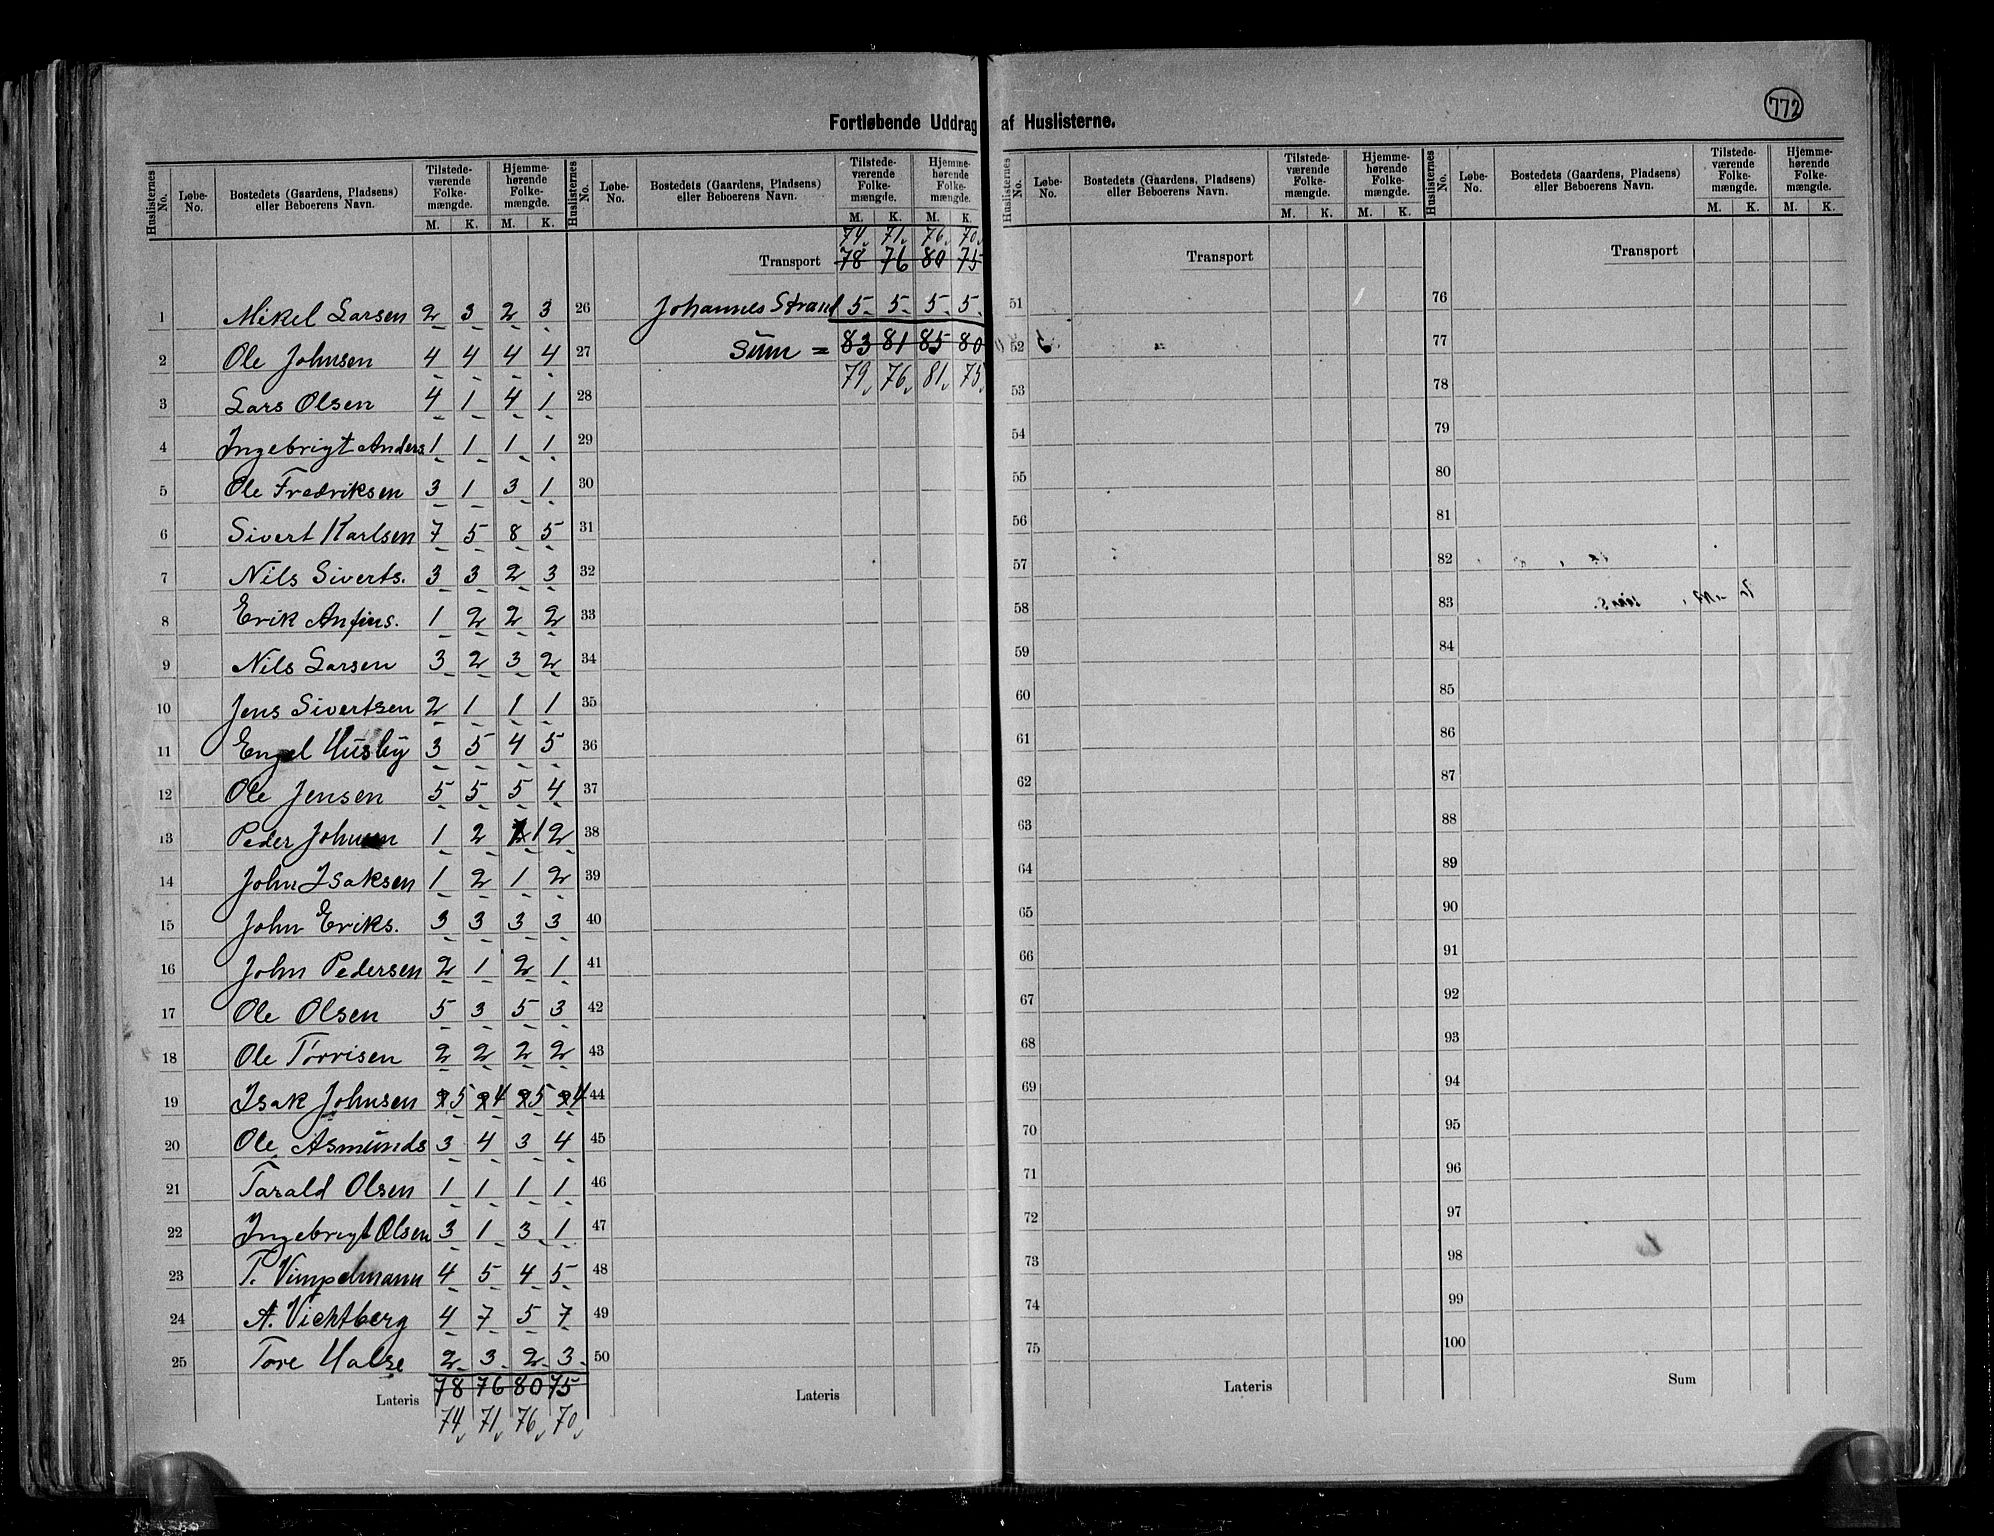 772
Fortløbende Uddrag af Huslisterne.
Huslisternes No. | Løbe-No. | Bostedets (Gaardens, Pladsens) eller Beboerens Navn. | Tilstede-værende Folke-mængde. M. K. | Hjemme-hørende Folke-mængde. M. K.
1 Mikel Larsen 2 3 2 3
2 Ole Johnsen 4 4 4 4
3 Lars Olsen 4 1 4 1
4 Ingebrigt Anders 1 1 1 1
5 Ole Fredriksen 3 1 3 1
6 Sivert Karlsen 7 5 8 5
7 Nils Siverts. 3 3 2 3
8 Erik Anfins. 1 2 2 2
9 Nils Larsen 3 2 3 2
10 Jens Sivertsen 2 1 1 1
11 Engel Husby 3 5 4 5
12 Ole Jensen 5 5 5 4
13 Peder Johnsen 1 2 1 2
14 John Isaksen 1 2 1 2
15 John Eriks. 3 3 3 3
16 John Pedersen 2 1 2 1
17 Ole Olsen 5 3 5 3
18 Ole Tørrisen 2 2 2 2
19 Isak Johnsen 5 4 5 4
20 Ole Asmunds 3 4 3 4
21 Tarald Olsen 1 1 1 1
22 Ingebrigt Olsen 3 1 3 1
23 T. Vimpelmann 4 5 4 5
24 A. Vichtberg 4 7 5 7
25 Tore Halse 2 3 2 3
Lateris 78 76 80 75
74 71 76 70
Huslisternes No. | Løbe-No. | Bostedets (Gaardens, Pladsens) eller Beboerens Navn. | Tilstede-værende Folke-mængde. M. K. | Hjemme-hørende Folke-mængde. M. K.
74 71 76 70
Transport 78 76 80 75
26 Johannes Strand 5 5 5 5
27 Sum = 83 81 85 80
79 76 81 75
28
29
30
31
32
33
34
35
36
37
38
39
40
41
42
43
44
45
46
47
48
49
50
Lateris
Huslisternes No. | Løbe-No. | Bostedets (Gaardens, Pladsens) eller Beboerens Navn. | Tilstede-værende Folke-mængde. M. K. | Hjemme-hørende Folke-mængde. M. K.
Transport
51
52
53
54
55
56
57
58
59
60
61
62
63
64
65
66
67
68
69
70
71
72
73
74
75
Lateris
Huslisternes No. | Løbe-No. | Bostedets (Gaardens, Pladsens) eller Beboerens Navn. | Tilstede-værende Folke-mængde. M. K. | Hjemme-hørende Folke-mængde. M. K.
Transport
76
77
78
79
80
81
82
83
84
85
86
87
88
89
90
91
92
93
94
95
96
97
98
99
100
Sum